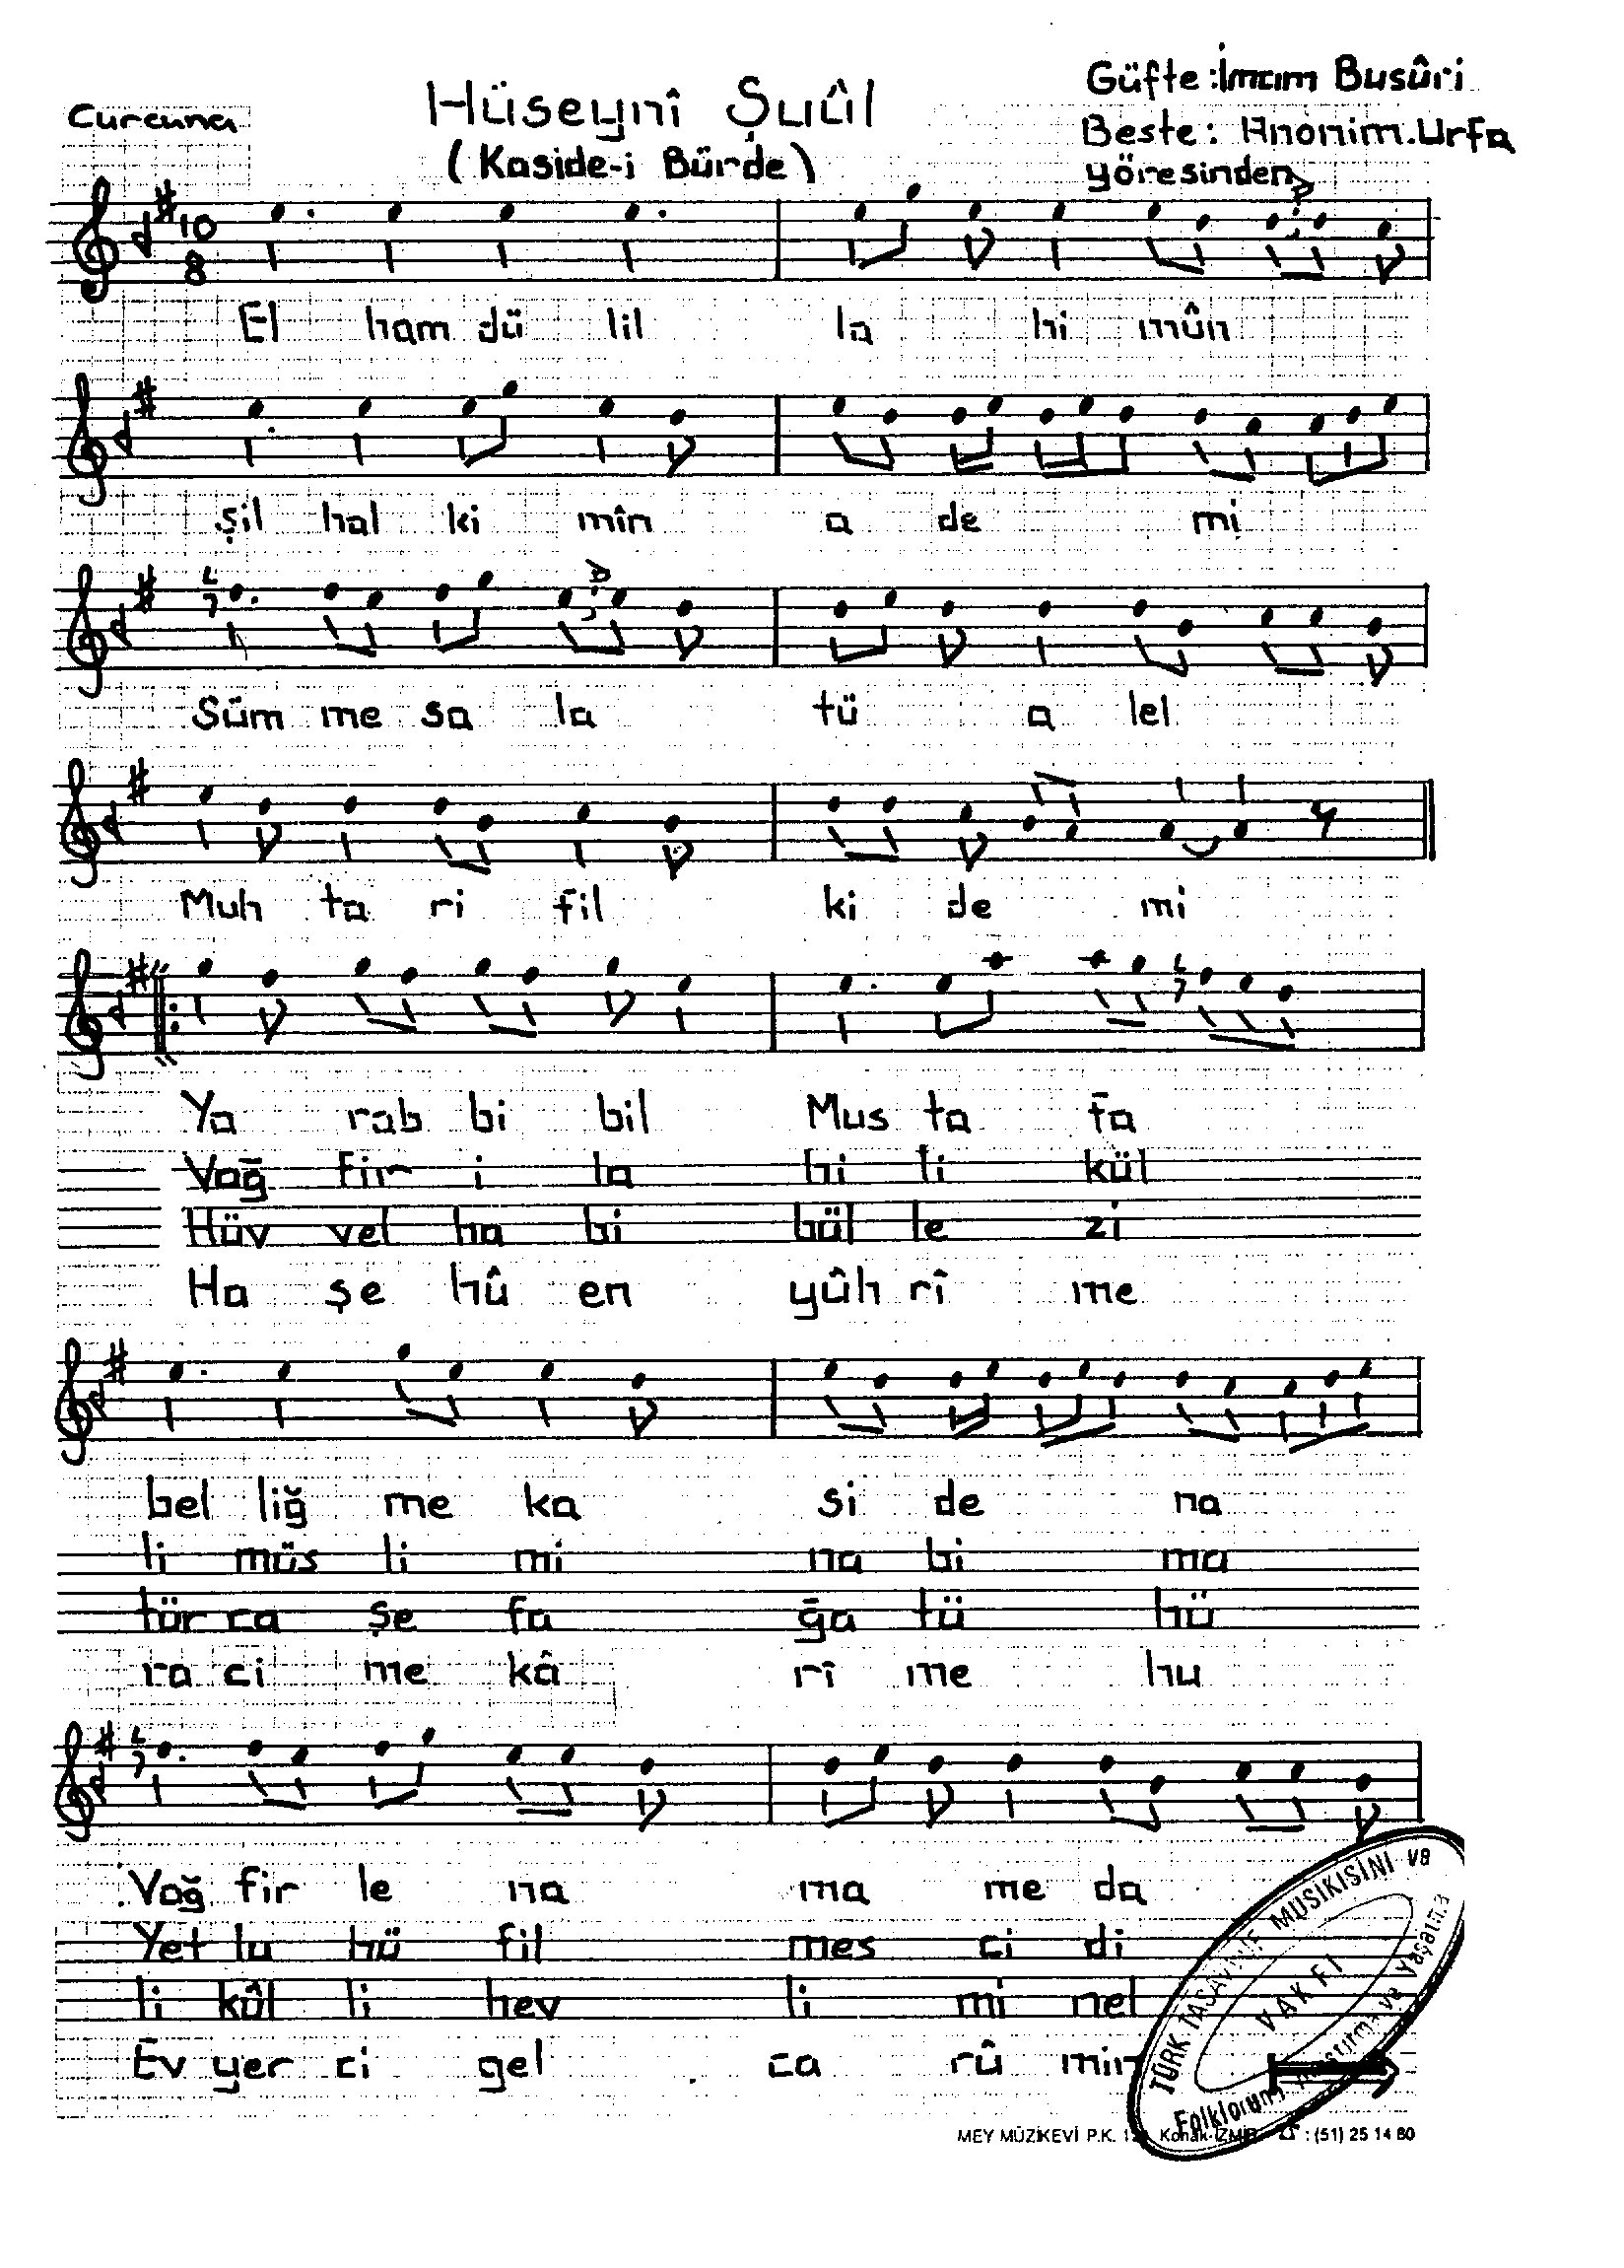 Curcuna
Hüseynî Şuûl
(Kaside-i Bürde)
Güfte: İmam Busûri
Beste: Anonim. Urfa
yöresinden
10
8
El ham dü lil la hi mûn
şil hal ki mîn a de mi
Süm me sa la tü a lel
Muh ta ri fil ki de mi
Ya rab bi bil Mus ta fa
Vağ fir i la hi li kül
Hüv vel ha bi bül le zi
Ha şe hû en yûh rî me
bel liğ me ka si de na
li müs li mi na bi ma
tür ca şe fa ğa tü hü
ra ci me kâ rî me hu
Vağ fir le na ma me da
Yet lu hü fil mes ci di
li kûl li hev li mi nel
Ev yer ci gel ca rû min
TÜRK TASAVVUF MUSIKISİNİ ve
VAKFI
Folklorunu ve Yaşatma
MEY MÜZİKEVİ P.K. Konak-İZMİR : (51) 25 14 80